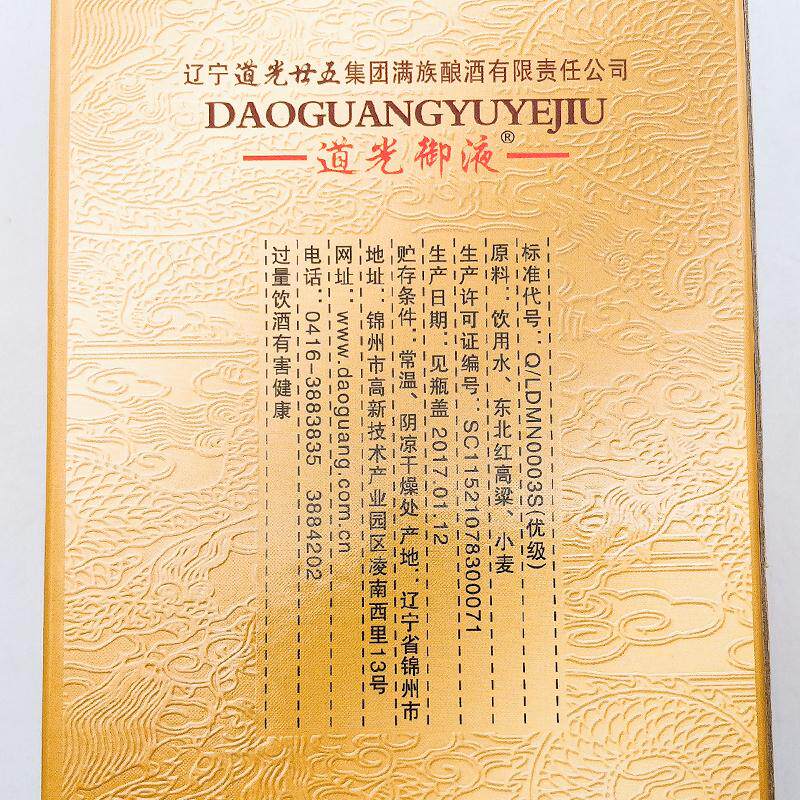 辽宁道光廿五集团满族酿酒有限责任公司
DAOGUANGYUYEJIU
道光御液®
标准代号：Q/LDMN0003S(优级)
原料：饮用水、东北红高粱、小麦
生产许可证编号：SC11521078300071
生产日期：见瓶盖 2017.01.12
贮存条件：常温、阴凉干燥处 产地：辽宁省锦州市
地址：锦州市高新技术产业园区凌南西里13号
网址：www.daoguang.com.cn
电话：0416-3883835 3884202
过量饮酒有害健康